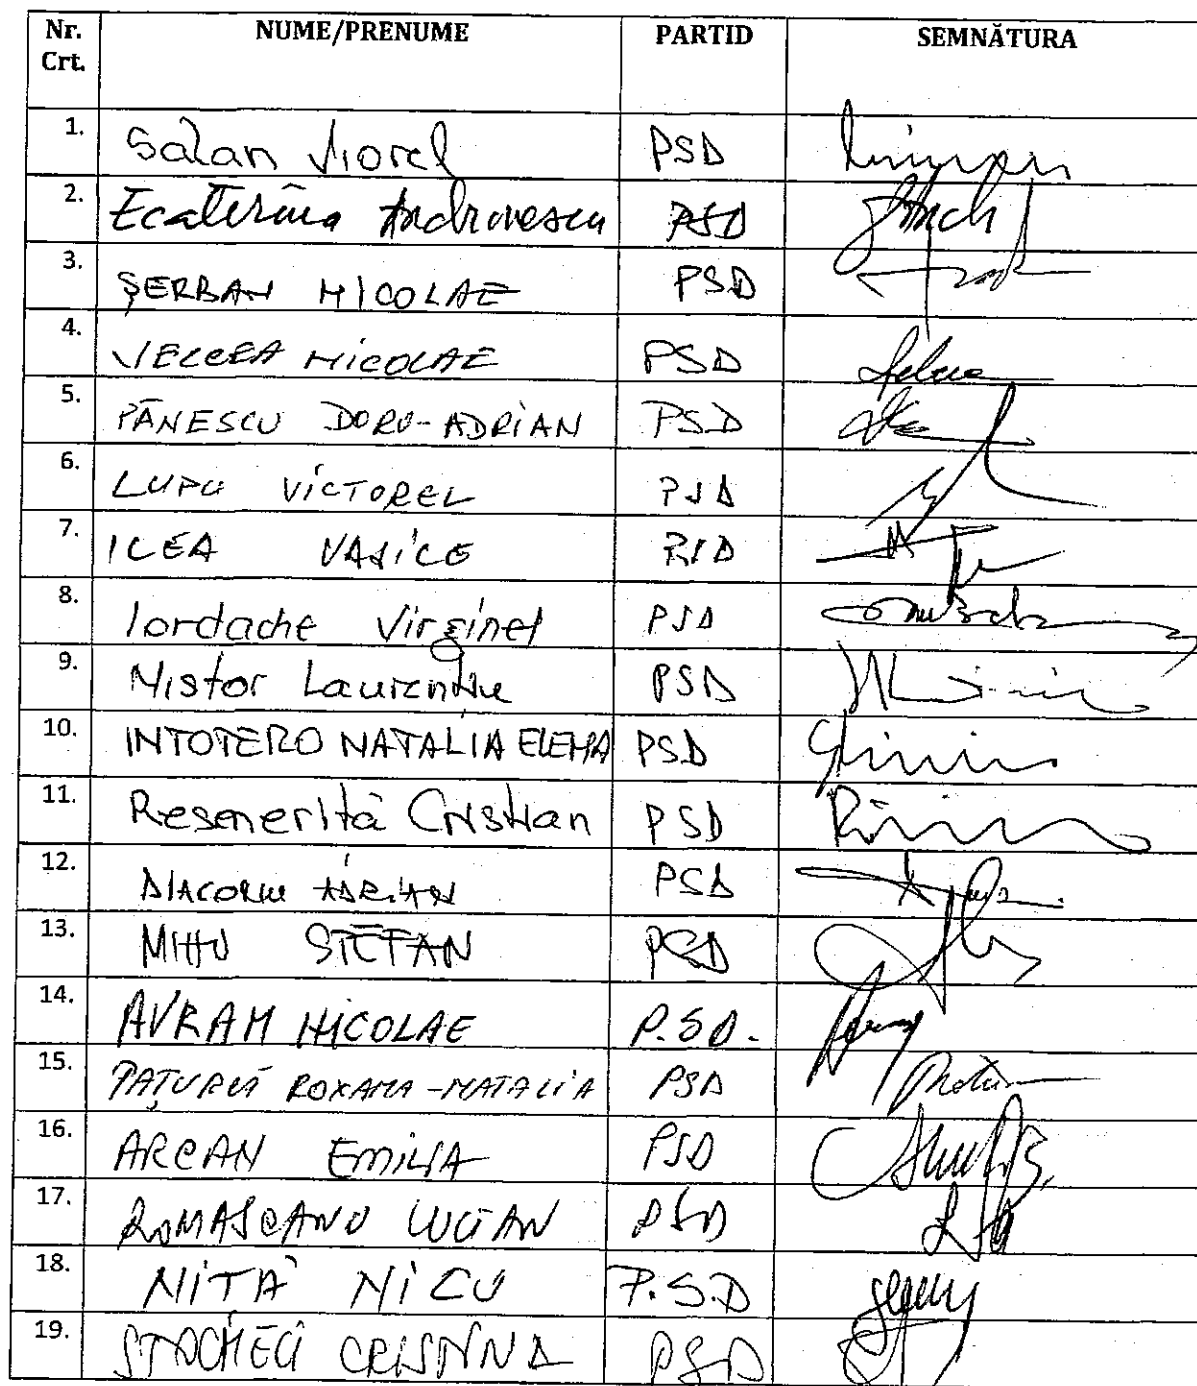 Nr. Crt. NUME/PRENUME PARTID SEMNĂTURA
1. Salan Viorel PSD
2. Ecaterina Andronescu PSD
3. ȘERBAN NICOLAE PSD
4. VELCEA NICOLAE PSD
5. PĂNESCU DORU-ADRIAN PSD
6. LUPU VICTOREL PSD
7. ICEA VASILE PSD
8. Iordache Virginel PSD
9. Nistor Laurențiu PSD
10. INTOTERO NATALIA ELENA PSD
11. Resmeriță Cristian PSD
12. DIACONU ADRIAN PSD
13. MIHU ȘTEFAN PSD
14. AVRAM NICOLAE P.S.D.
15. PAȚURCĂ ROXANA-NATALIA PSD
16. ARCAN EMILIA PSD
17. ROMAȘCANU LUCIAN PSD
18. NIȚĂ NICU P.S.D
19. CRISTINA PSD